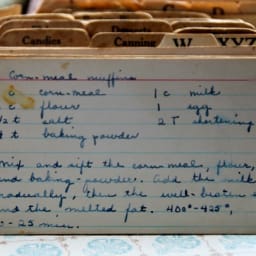 Candies
Desserts
Canning
W
XYZ
Corn-meal muffins
c corn-meal 1 c milk
c flour 1 egg
1/2 t salt 2 T shortening
t baking powder
Mix and sift the corn-meal, flour,
and baking-powder. Add the milk
gradually, then the well-beaten
and the melted fat. 400°-425°,
- 25 min.